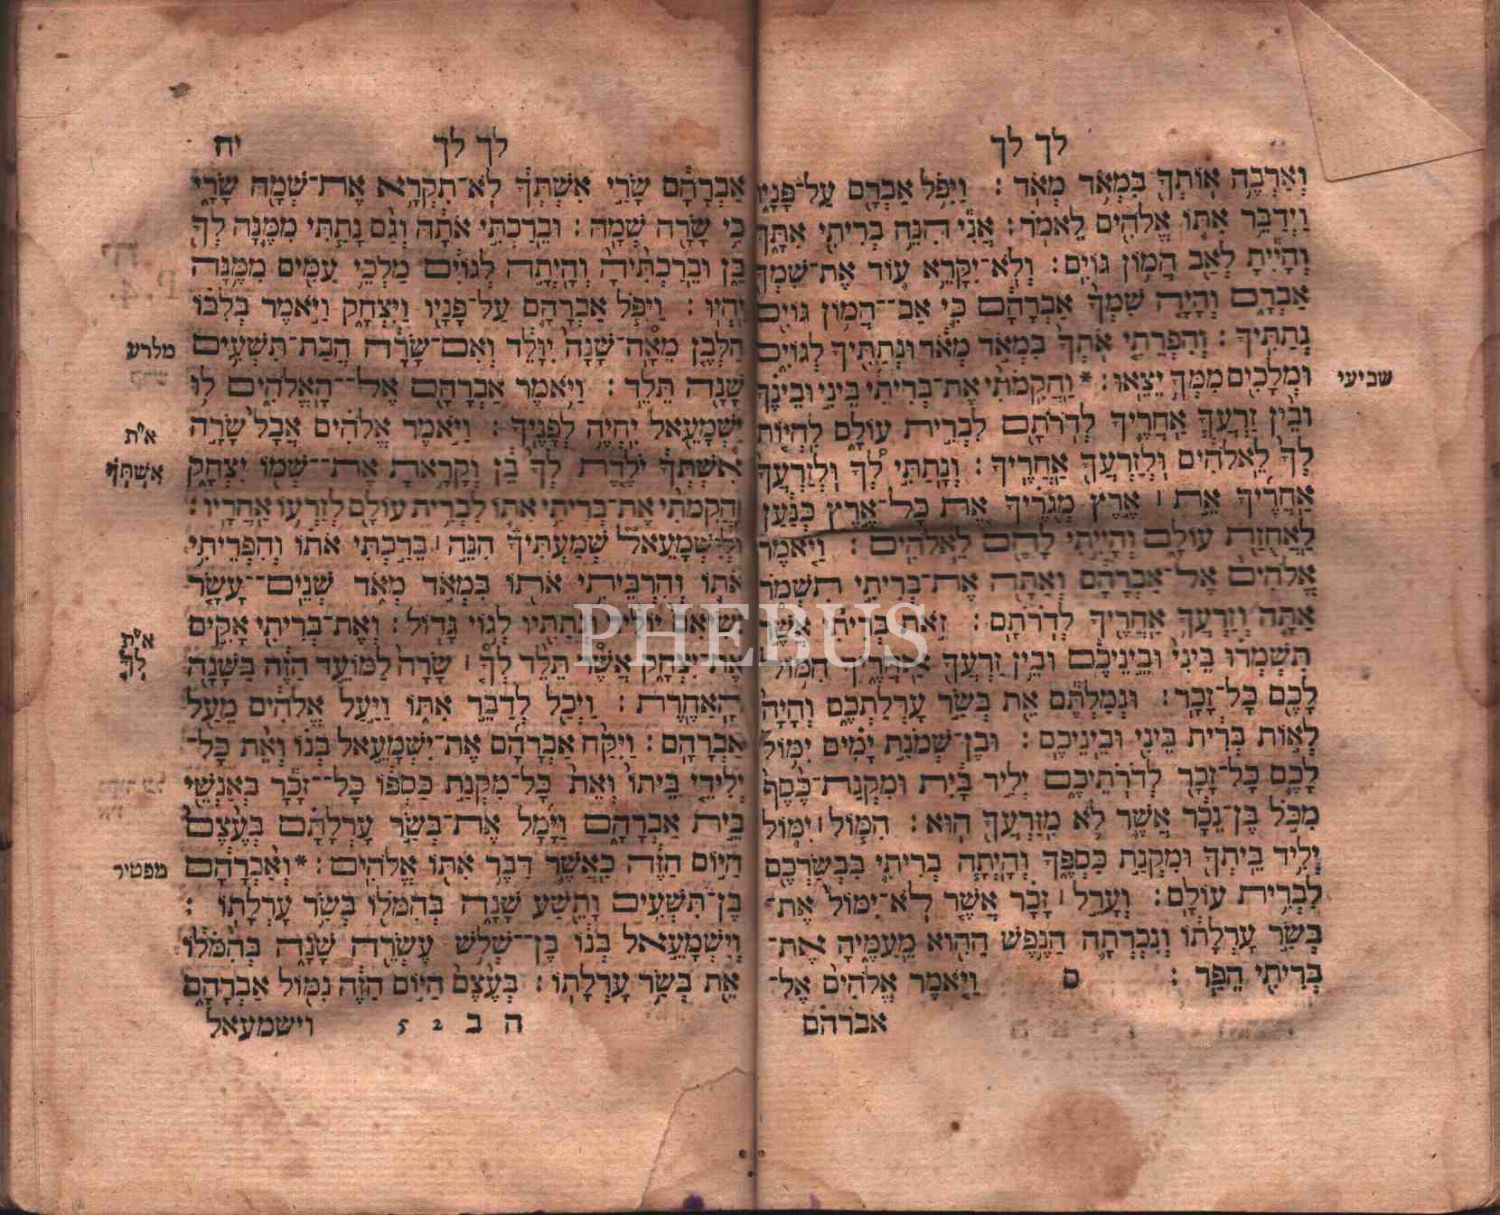 לך לך
וְאַרְבֶּה אוֹתְךָ בִּמְאֹד מְאֹד׃ וַיִּפֹּל אַבְרָם עַל־פָּנָיו
וַיְדַבֵּר אִתּוֹ אֱלֹהִים לֵאמֹר׃ אֲנִי הִנֵּה בְרִיתִי אִתָּךְ
וְהָיִיתָ לְאַב הֲמוֹן גּוֹיִם׃ וְלֹא־יִקָּרֵא עוֹד אֶת־שִׁמְךָ
אַבְרָם וְהָיָה שִׁמְךָ אַבְרָהָם כִּי אַב־הֲמוֹן גּוֹיִם
נְתַתִּיךָ׃ וְהִפְרֵתִי אֹתְךָ בִּמְאֹד מְאֹד וּנְתַתִּיךָ לְגוֹיִם
וּמְלָכִים מִמְּךָ יֵצֵאוּ׃ * וַהֲקִמֹתִי אֶת־בְּרִיתִי בֵּינִי וּבֵינֶךָ
שביעי
וּבֵין זַרְעֲךָ אַחֲרֶיךָ לְדֹרֹתָם לִבְרִית עוֹלָם לִהְיוֹת
לְךָ לֵאלֹהִים וּלְזַרְעֲךָ אַחֲרֶיךָ׃ וְנָתַתִּי לְךָ וּלְזַרְעֲךָ
אַחֲרֶיךָ אֵת ׀ אֶרֶץ מְגֻרֶיךָ אֵת כָּל־אֶרֶץ כְּנַעַן
לַאֲחֻזַּת עוֹלָם וְהָיִיתִי לָהֶם לֵאלֹהִים׃ וַיֹּאמֶר
אֱלֹהִים אֶל־אַבְרָהָם וְאַתָּה אֶת־בְּרִיתִי תִשְׁמֹר
אַתָּה וְזַרְעֲךָ אַחֲרֶיךָ לְדֹרֹתָם׃ זֹאת בְּרִיתִי אֲשֶׁר
תִּשְׁמְרוּ בֵּינִי וּבֵינֵיכֶם וּבֵין זַרְעֲךָ אַחֲרֶיךָ הִמּוֹל
לָכֶם כָּל־זָכָר׃ וּנְמַלְתֶּם אֵת בְּשַׂר עָרְלַתְכֶם וְהָיָה
לְאוֹת בְּרִית בֵּינִי וּבֵינֵיכֶם׃ וּבֶן־שְׁמֹנַת יָמִים יִמּוֹל
לָכֶם כָּל־זָכָר לְדֹרֹתֵיכֶם יְלִיד בָּיִת וּמִקְנַת־כֶּסֶף
מִכֹּל בֶּן־נֵכָר אֲשֶׁר לֹא מִזַּרְעֲךָ הוּא׃ הִמּוֹל ׀ יִמּוֹל
יְלִיד בֵּיתְךָ וּמִקְנַת כַּסְפֶּךָ וְהָיְתָה בְרִיתִי בִּבְשַׂרְכֶם
לִבְרִית עוֹלָם׃ וְעָרֵל ׀ זָכָר אֲשֶׁר לֹא־יִמּוֹל אֶת־
בְּשַׂר עָרְלָתוֹ וְנִכְרְתָה הַנֶּפֶשׁ הַהִוא מֵעַמֶּיהָ אֶת־
בְּרִיתִי הֵפַר׃ ס וַיֹּאמֶר אֱלֹהִים אֶל־
אברהם
לך לך יח
אַבְרָהָם שָׂרַי אִשְׁתְּךָ לֹא־תִקְרָא אֶת־שְׁמָהּ שָׂרָי
כִּי שָׂרָה שְׁמָהּ׃ וּבֵרַכְתִּי אֹתָהּ וְגַם נָתַתִּי מִמֶּנָּה לְךָ
בֵּן וּבֵרַכְתִּיהָ וְהָיְתָה לְגוֹיִם מַלְכֵי עַמִּים מִמֶּנָּה
יִהְיוּ׃ וַיִּפֹּל אַבְרָהָם עַל־פָּנָיו וַיִּצְחָק וַיֹּאמֶר בְּלִבּוֹ
הַלְּבֶן מֵאָה־שָׁנָה יִוָּלֵד וְאִם־שָׂרָה הֲבַת־תִּשְׁעִים
מלרע
שָׁנָה תֵּלֵד׃ וַיֹּאמֶר אַבְרָהָם אֶל־הָאֱלֹהִים לוּ
יִשְׁמָעֵאל יִחְיֶה לְפָנֶיךָ׃ וַיֹּאמֶר אֱלֹהִים אֲבָל שָׂרָה
א"ת
אִשְׁתְּךָ יֹלֶדֶת לְךָ בֵּן וְקָרָאתָ אֶת־שְׁמוֹ יִצְחָק
אִשְׁתְּךָ
וַהֲקִמֹתִי אֶת־בְּרִיתִי אִתּוֹ לִבְרִית עוֹלָם לְזַרְעוֹ אַחֲרָיו׃
וּלְיִשְׁמָעֵאל שְׁמַעְתִּיךָ הִנֵּה ׀ בֵּרַכְתִּי אֹתוֹ וְהִפְרֵיתִי
אֹתוֹ וְהִרְבֵּיתִי אֹתוֹ בִּמְאֹד מְאֹד שְׁנֵים־עָשָׂר
נְשִׂיאִם יוֹלִיד וּנְתַתִּיו לְגוֹי גָּדוֹל׃ וְאֶת־בְּרִיתִי אָקִים
א"ת
אֶת־יִצְחָק אֲשֶׁר תֵּלֵד לְךָ ׀ שָׂרָה לַמּוֹעֵד הַזֶּה בַּשָּׁנָה
לְךָ
הָאַחֶרֶת׃ וַיְכַל לְדַבֵּר אִתּוֹ וַיַּעַל אֱלֹהִים מֵעַל
אַבְרָהָם׃ וַיִּקַּח אַבְרָהָם אֶת־יִשְׁמָעֵאל בְּנוֹ וְאֵת כָּל־
יְלִידֵי בֵיתוֹ וְאֵת כָּל־מִקְנַת כַּסְפּוֹ כָּל־זָכָר בְּאַנְשֵׁי
בֵּית אַבְרָהָם וַיָּמָל אֶת־בְּשַׂר עָרְלָתָם בְּעֶצֶם
הַיּוֹם הַזֶּה כַּאֲשֶׁר דִּבֶּר אִתּוֹ אֱלֹהִים׃ * וְאַבְרָהָם
מפטיר
בֶּן־תִּשְׁעִים וָתֵשַׁע שָׁנָה בְּהִמֹּלוֹ בְּשַׂר עָרְלָתוֹ׃
וְיִשְׁמָעֵאל בְּנוֹ בֶּן־שְׁלֹשׁ עֶשְׂרֵה שָׁנָה בְּהִמֹּלוֹ
אֵת בְּשַׂר עָרְלָתוֹ׃ בְּעֶצֶם הַיּוֹם הַזֶּה נִמּוֹל אַבְרָהָם
ה ב 2 5 וישמעאל
PHEBUS